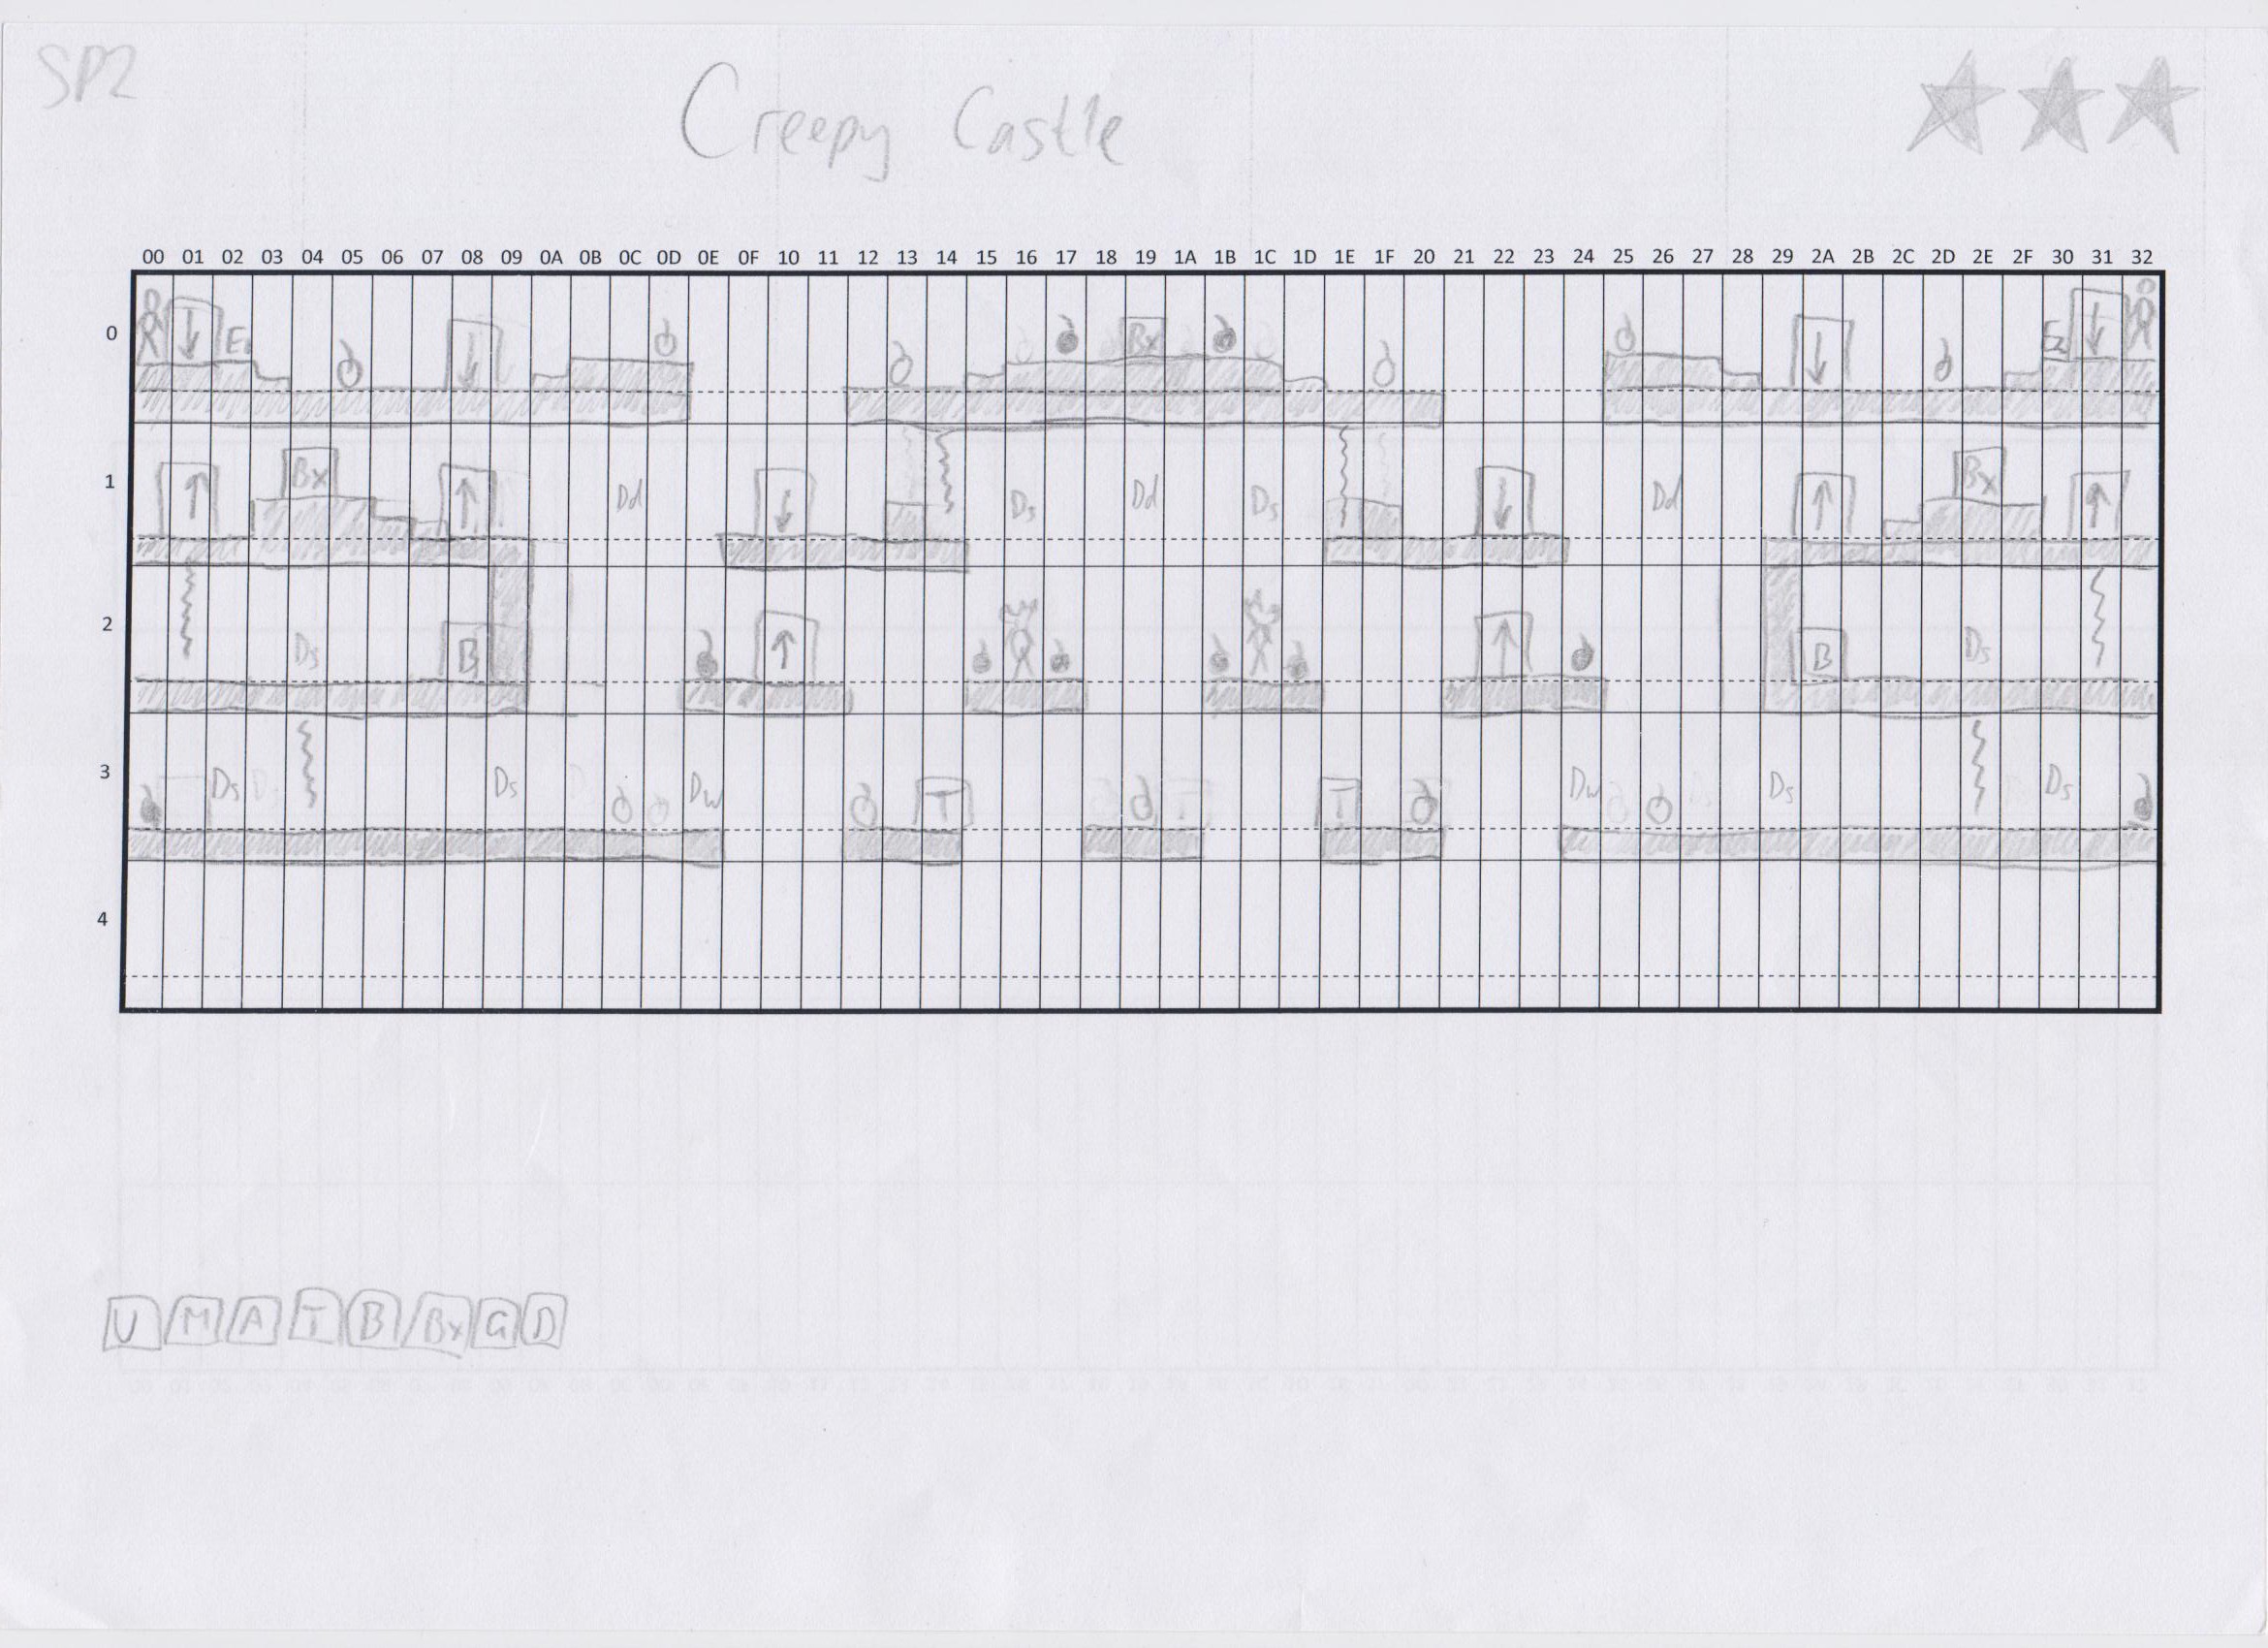 SP2
Creepy Castle
00 01 02 03 04 05 06 07 08 09 0A 0B 0C 0D 0E 0F 10 11 12 13 14 15 16 17 18 19 1A 1B 1C 1D 1E 1F 20 21 22 23 24 25 26 27 28 29 2A 2B 2C 2D 2E 2F 30 31 32
0 Bx
1 Bx Dd Ds Dd Ds Dd Bx
2 Ds B B Ds
3 Ds Ds Dw T T Dw Ds Ds
4
U M A T B Bx G D